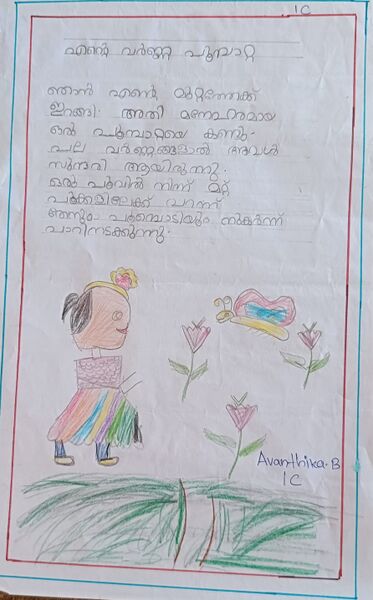 1C
എന്റെ വർണ്ണ പൂമ്പാറ്റ
ഞാൻ എന്റെ മുറ്റത്തേക്ക്
ഇറങ്ങി. അതി മനോഹരമായ
ഒരു പൂമ്പാറ്റയെ കണ്ടു.
പല വർണ്ണങ്ങളാൽ അവൾ
സുന്ദരി ആയിരുന്നു.
ഒരു പൂവിൽ നിന്ന് മറ്റ്
പൂക്കളിലേക്ക് പറന്ന്
തേനും പൂമ്പൊടിയും നുകർന്ന്
പാറിനടക്കുന്നു.
Avanthika.B
1C